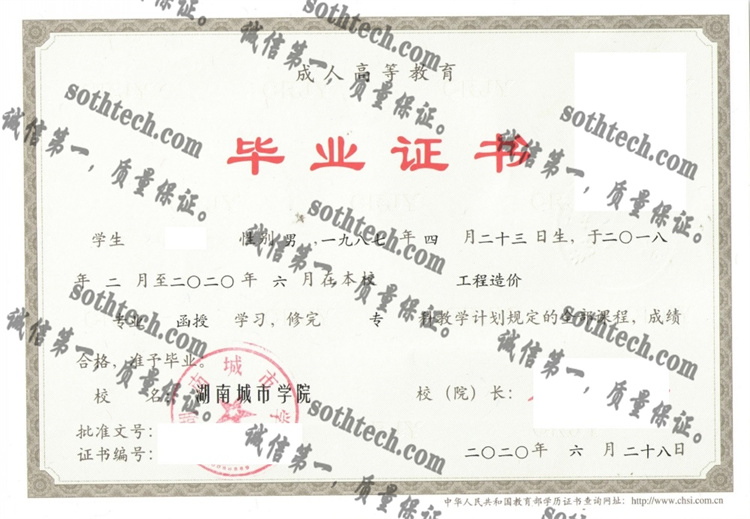 成人高等教育
毕业证书
学生 性别 男 ,一九八七 年 四 月二十三日生，于二〇一八
年 二 月至二〇二〇年 六 月在本校 工程造价
专业 函授 学习，修完 专 科教学计划规定的全部课程，成绩
合格，准予毕业。
校 名： 湖南城市学院 校（院）长：
批准文号：
证书编号： 二〇二〇年 六 月 二十八日
中华人民共和国教育部学历证书查询网址：http://www.chsi.com.cn
湖南城市学
sothtech.com
诚信第一，质量保证。
sothtech.com
诚信第一，质量保证。
sothtech.com
诚信第一，质量保证。
sothtech.com
诚信第一，质量保证。
sothtech.com
诚信第一，质量保证。
sothtech.com
诚信第一，质量保证。
sothtech.com
诚信第一，质量保证。